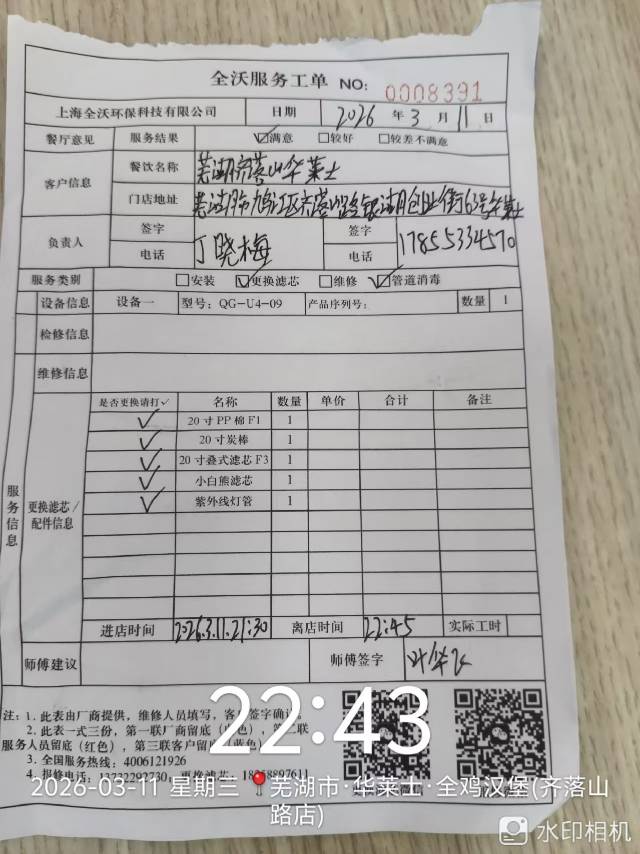 全沃服务工单 NO: 0008391
上海全沃环保科技有限公司 日期 2026 年 3 月 11 日
餐厅意见 服务结果 ☑满意 □较好 □较差不满意
客户信息 餐饮名称 芜湖齐落山华莱士
门店地址 芜湖市鸠江区齐落山路银湖创业街63号华莱士
负责人 签字 电话 丁晓梅 签字 电话 17855334570
服务类别 □安装 ☑更换滤芯 □维修 ☑管道消毒
设备信息 设备一 型号: QG-U4-09 产品序列号: 数量 1
检修信息
维修信息
服务信息 更换滤芯/配件信息
是否更换请打✓ 名称 数量 单价 合计 备注
✓ 20寸PP棉F1 1
✓ 20寸炭棒 1
✓ 20寸叠式滤芯F3 1
✓ 小白熊滤芯 1
✓ 紫外线灯管 1
进店时间 2026.3.11.21:30 离店时间 22:45 实际工时
师傅建议 师傅签字 叶华飞
22:43
注: 1. 此表由厂商提供，维修人员填写，客户签字确认。
2. 此表一式三份，第一联厂商留底（ 色），第二联
服务人员留底（红色），第三联客户留底（蓝色）
3. 全国服务热线: 4006121926
4. 报修电话: 更换滤芯:
2026-03-11 星期三 芜湖市·华莱士·全鸡汉堡(齐落山
路店)
水印相机